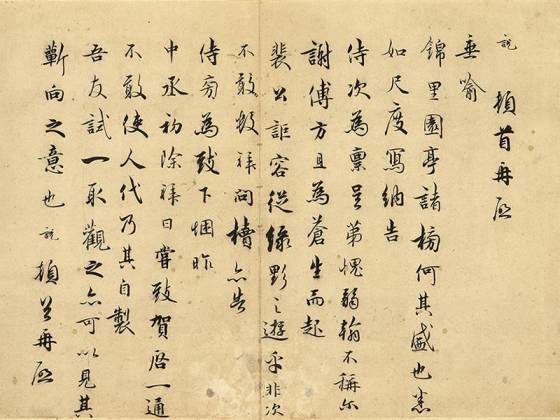 說 頓首再啟
垂喻
錦里園亭諸榜何其盛也悉
如尺度寫納告
侍次為稟呈第愧弱翰不稱尔
謝傅方且為蒼生而起
裴公詎容從綠野之遊乎非次
不敢數拜問牘亦告
侍旁為致下悃昨
中丞初除拜日嘗致賀啓一通
不敢使人代乃其自製
吾友試一取觀之亦可以見其
蘄向之意也 說 頓首再啟